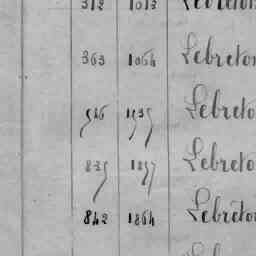 312 1013 Lebreton
363 1064 Lebreton
Lebreto
835 1857 Lebreto
842 1864 Lebreton